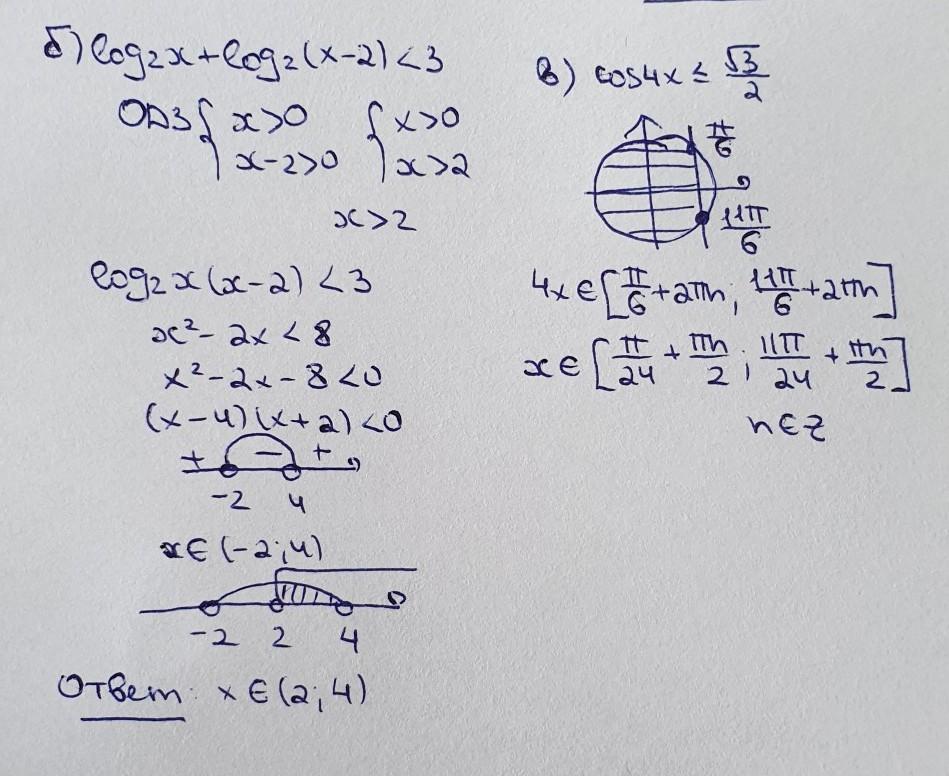 б) log₂x+log₂(x-2)<3
ОДЗ { x>0 { x>0
x-2>0 x>2
x>2
log₂x(x-2)<3
x²-2x<8
x²-2x-8<0
(x-4)(x+2)<0
+ - +
-2 4
x∈(-2;4)
-2 2 4
Ответ: x∈(2;4)
в) cos4x≤√3/2
π/6
11π/6
4x∈[π/6+2πn; 11π/6+2πn]
x∈[π/24+πn/2; 11π/24+πn/2]
n∈z